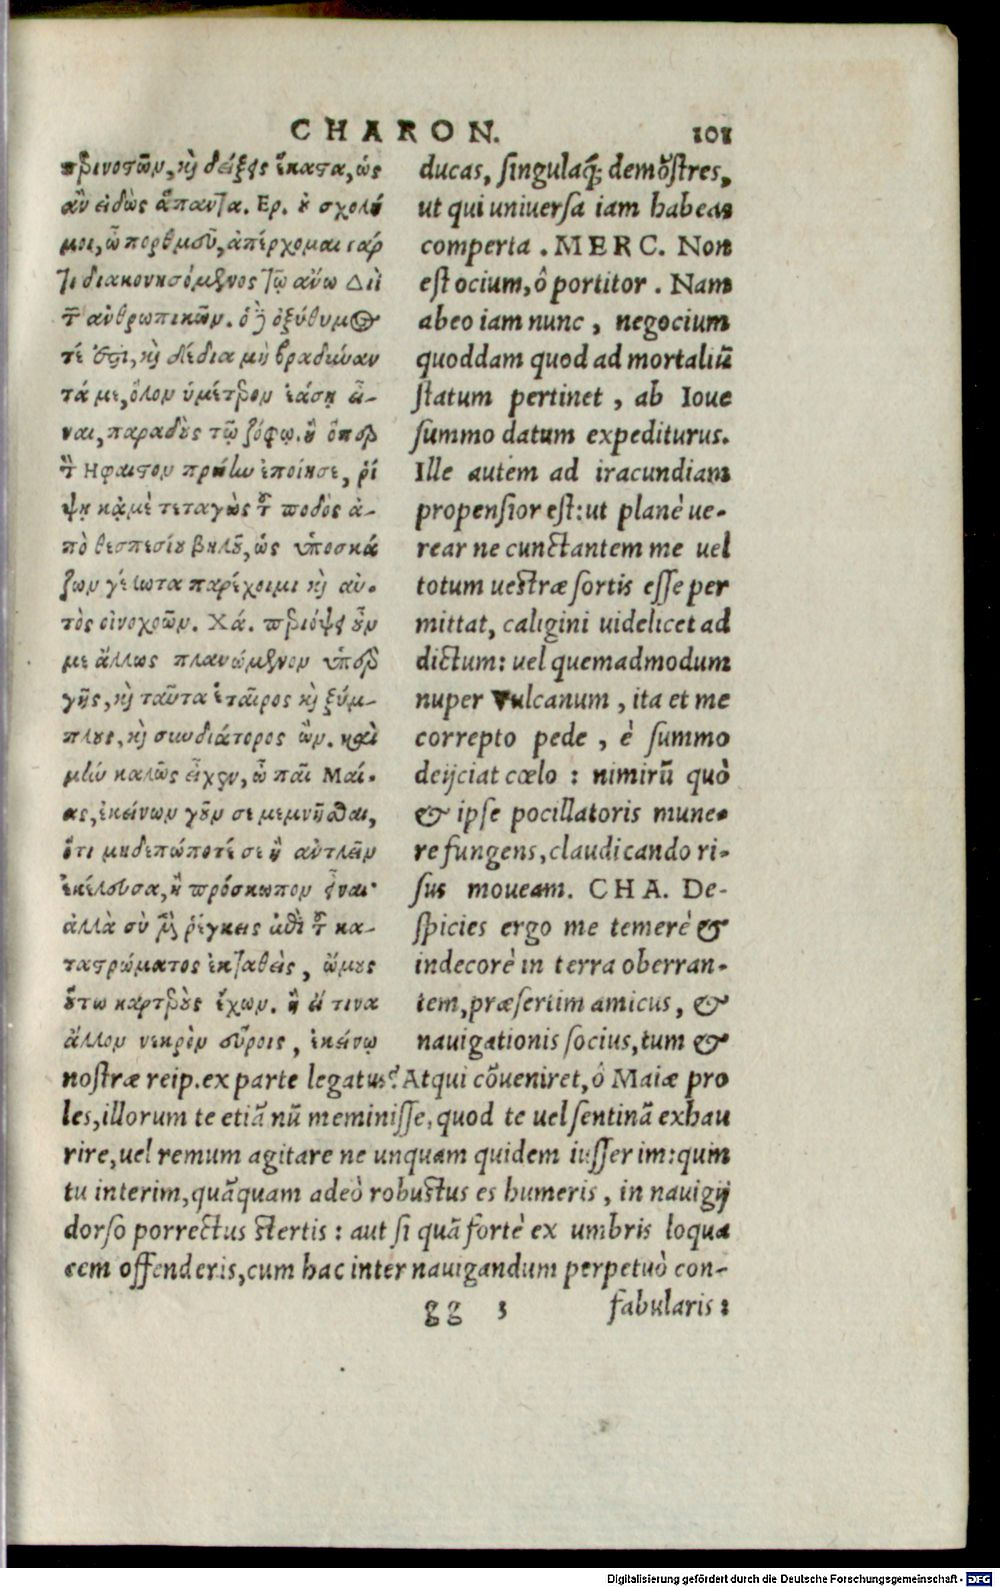 CHARON. 101
πρινοστῶν, καὶ δείξεις ἕκαστα, ὡς
ἂν εἰδὼς ἅπαντα. Ερ. οὐ σχολή
μοι, ὦ πορθμεῦ, ἀπέρχομαι γάρ
τι διακονησόμενος τῷ ἄνω Διὶ
τῶν ἀνθρωπικῶν. ὁ δὲ ὀξύθυμός
τέ ἐστι, καὶ δέδια μὴ βραδύναν
τά με, ὅλον ὑμέτερον ἐάσῃ εἶ-
ναι, παραδοὺς τῷ ζόφῳ. ἢ ὅπερ
τὸν Ηφαιστον πρώην ἐποίησε, ῥί
ψῃ κᾀμὲ τεταγὼς τοῦ ποδὸς ἀ-
πὸ θεσπεσίου βηλοῦ, ὡς ὑποσκά
ζων γέλωτα παρέχοιμι καὶ αὐ-
τὸς οἰνοχοῶν. Χά. περιόψει οὖν
με ἄλλως πλανώμενον ὑπὲρ
γῆς, καὶ ταῦτα ἑταῖρος καὶ ξύμ-
πλους, καὶ συνδιάτορος ὤν. καὶ
μὴν καλῶς εἶχεν, ὦ παῖ Μαί-
ας, ἐκείνων γοῦν σε μεμνῆσθαι,
ὅτι μηδεπώποτέ σε ἢ ἀντλεῖν
ἐκέλευσα, ἢ πρόσκωπον εἶναι·
ἀλλὰ σὺ μὲν ῥέγκεις ἐπὶ τοῦ κα-
ταστρώματος ἐκταθεὶς, ὤμους
οὕτω καρτεροὺς ἔχων. ἢ εἴ τινα
ἄλλον νεκρὸν εὕροις, ἐκείνῳ
ducas, singulaq; demõstres,
ut qui uniuersa iam habeas
comperta. MERC. Non
est ocium, ô portitor. Nam
abeo iam nunc, negocium
quoddam quod ad mortaliũ
statum pertinet, ab Ioue
summo datum expediturus.
Ille autem ad iracundiam
propensior est: ut planè ue-
rear ne cunctantem me uel
totum uestræ sortis esse per
mittat, caligini uidelicet ad
dictum: uel quemadmodum
nuper Vulcanum, ita et me
correpto pede, è summo
deijciat cœlo: nimirũ quò
& ipse pocillatoris mune-
re fungens, claudicando ri-
sus moueam. CHA. De-
spicies ergo me temerè &
indecorè in terra oberran-
tem, præsertim amicus, &
nauigationis socius, tum &
nostræ reip. ex parte legatus? Atqui cõueniret, ô Maiæ pro
les, illorum te etiã nũ meminisse, quod te uel sentinã exhau
rire, uel remum agitare ne unquam quidem iusserim: quin
tu interim, quãquam adeò robustus es humeris, in nauigij
dorso porrectus stertis: aut si quã fortè ex umbris loqua
cem offenderis, cum hac inter nauigandum perpetuò con-
gg 3 fabularis:
Digitalisierung gefördert durch die Deutsche Forschungsgemeinschaft - DFG